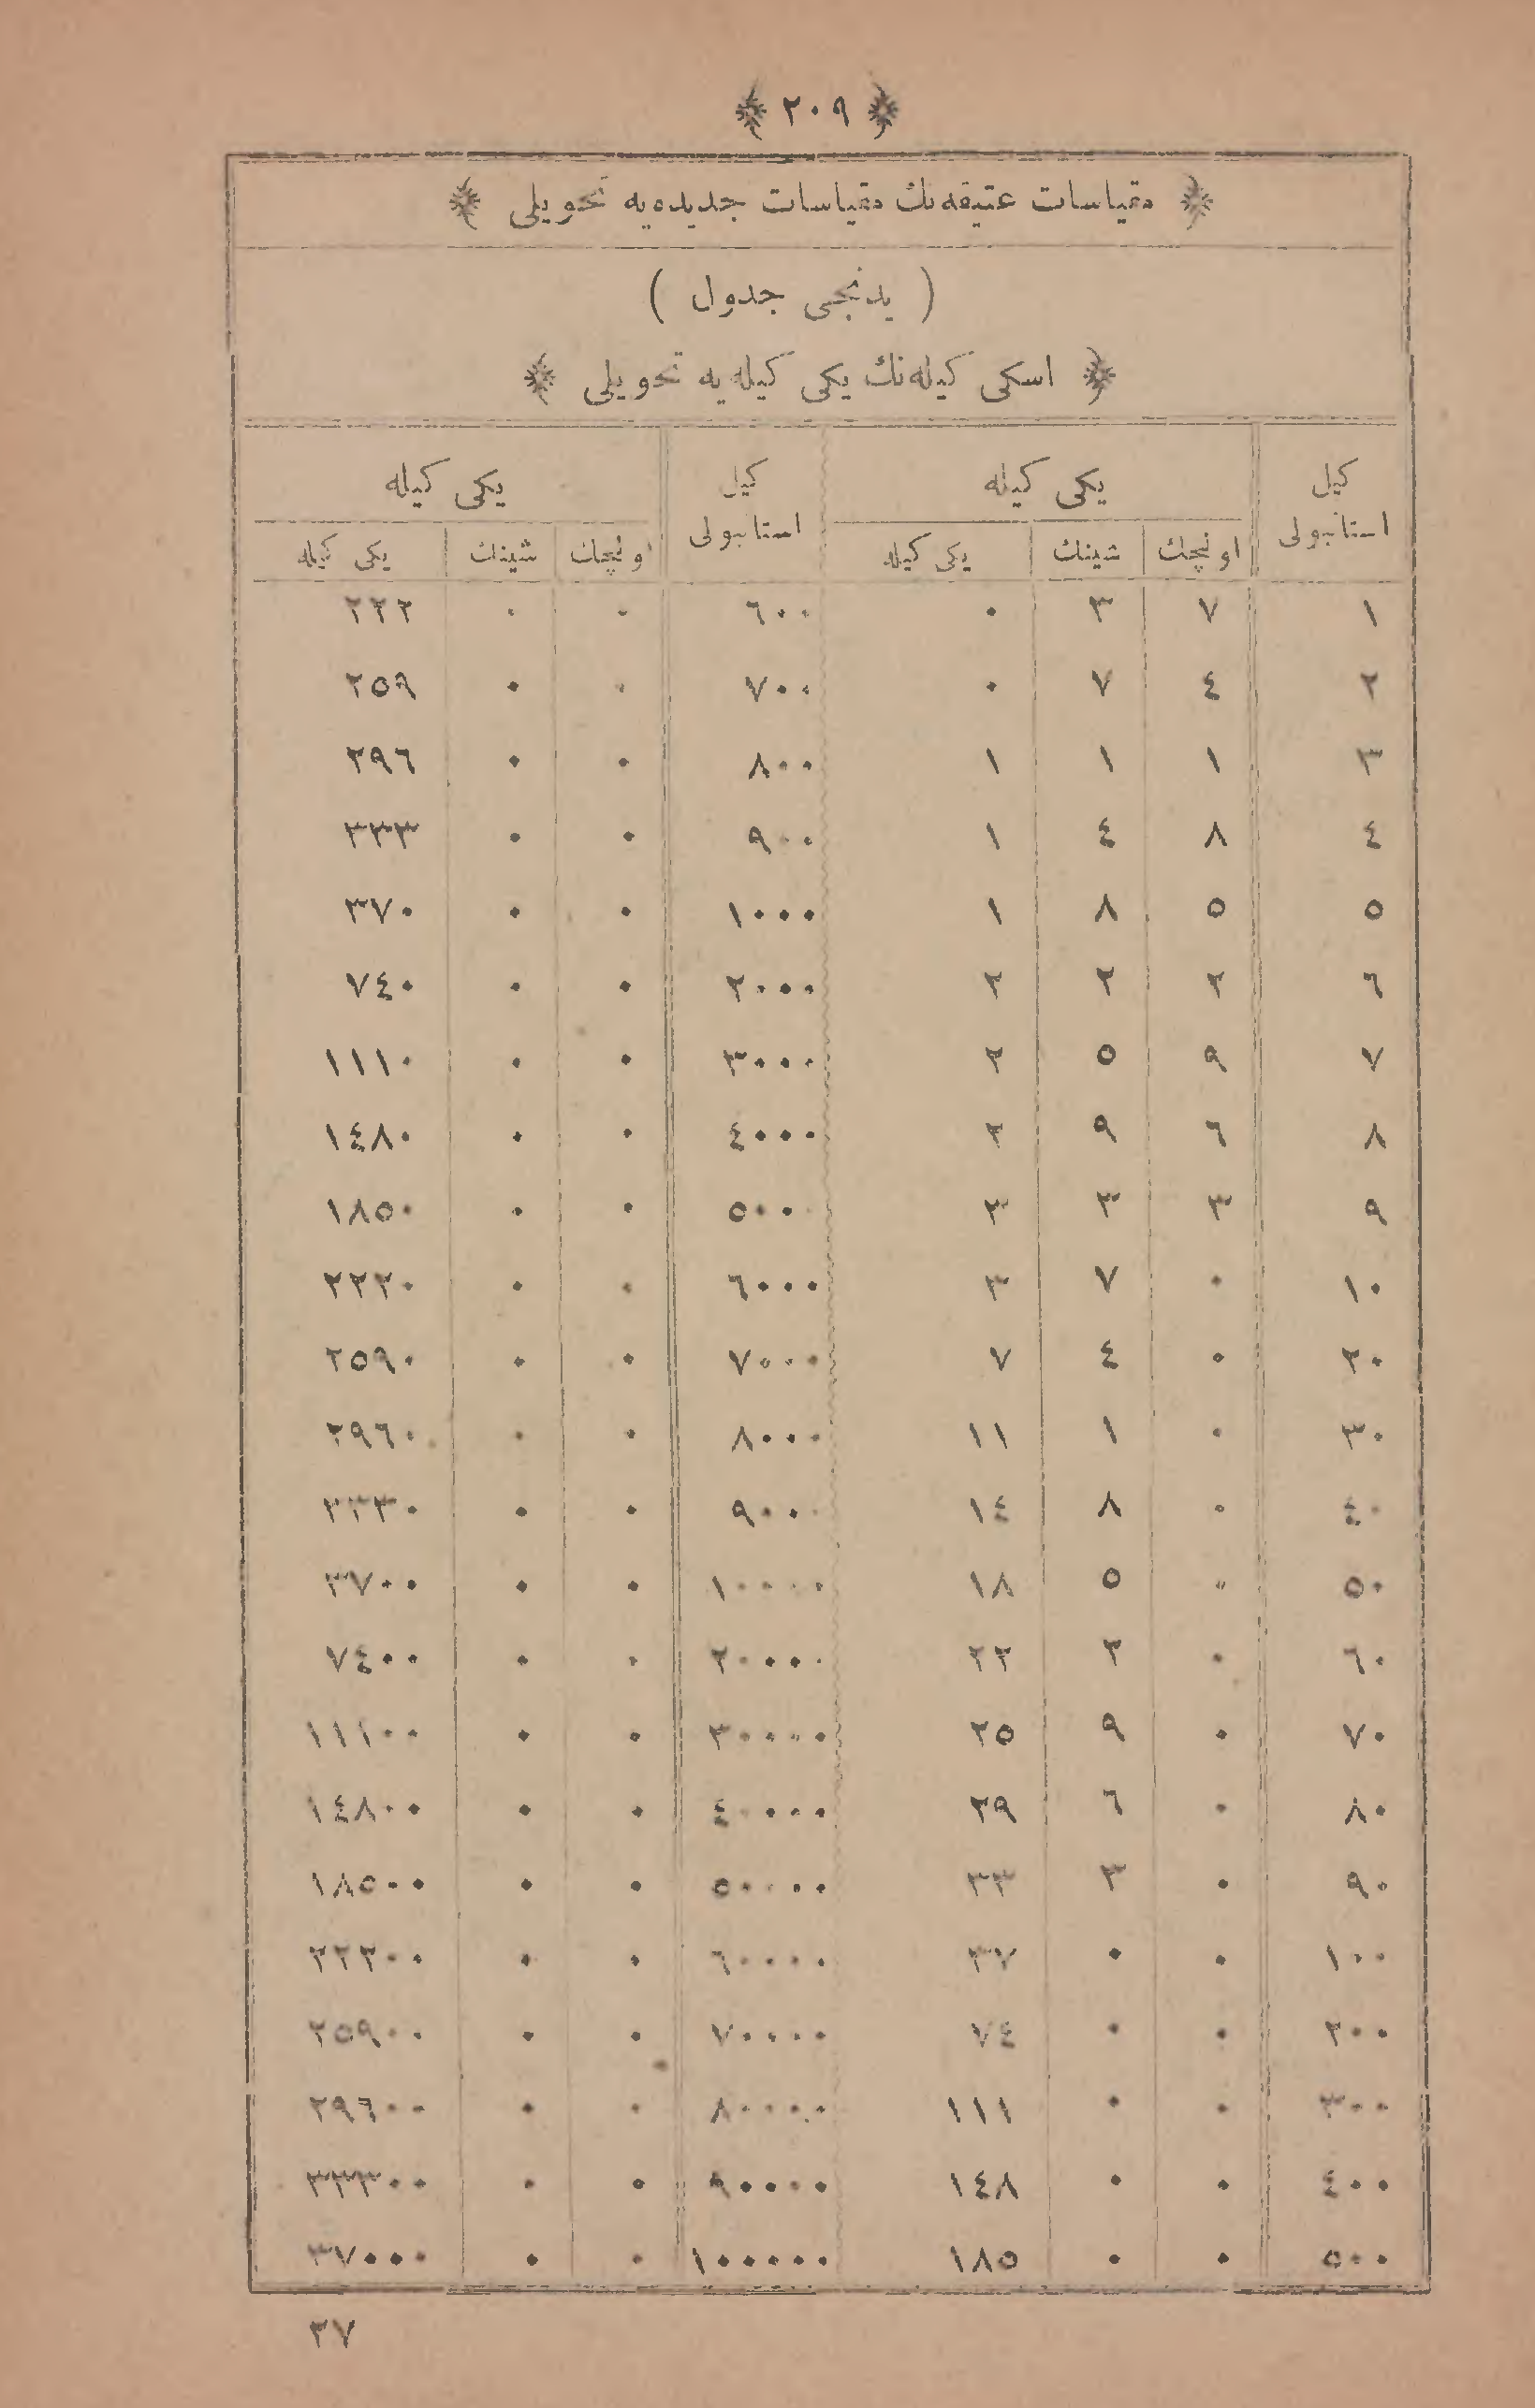 ﴿ ٢٠٩ ﴾
﴿ مقياسات عتيقه‌نك مقياسات جديده‌يه تحويلى ﴾
( يدنجى جدول )
﴿ اسكى كيله‌نك يكى كيله‌يه تحويلى ﴾
كيل استانبولى يكى كيله كيل استانبولى يكى كيله
اولچك شينك يكى كيله اولچك شينك يكى كيله
١ ٧ ٣ ٠ ٦٠٠ ٠ ٠ ٢٢٢
٢ ٤ ٧ ٠ ٧٠٠ ٠ ٠ ٢٥٩
٣ ١ ١ ١ ٨٠٠ ٠ ٠ ٢٩٦
٤ ٨ ٤ ١ ٩٠٠ ٠ ٠ ٣٣٣
٥ ٥ ٨ ١ ١٠٠٠ ٠ ٠ ٣٧٠
٦ ٢ ٢ ٢ ٢٠٠٠ ٠ ٠ ٧٤٠
٧ ٩ ٥ ٢ ٣٠٠٠ ٠ ٠ ١١١٠
٨ ٦ ٩ ٢ ٤٠٠٠ ٠ ٠ ١٤٨٠
٩ ٣ ٣ ٣ ٥٠٠٠ ٠ ٠ ١٨٥٠
١٠ ٠ ٧ ٣ ٦٠٠٠ ٠ ٠ ٢٢٢٠
٢٠ ٠ ٤ ٧ ٧٠٠٠ ٠ ٠ ٢٥٩٠
٣٠ ٠ ١ ١١ ٨٠٠٠ ٠ ٠ ٢٩٦٠
٤٠ ٠ ٨ ١٤ ٩٠٠٠ ٠ ٠ ٣٣٣٠
٥٠ ٠ ٥ ١٨ ١٠٠٠٠ ٠ ٠ ٣٧٠٠
٦٠ ٠ ٢ ٢٢ ٢٠٠٠٠ ٠ ٠ ٧٤٠٠
٧٠ ٠ ٩ ٢٥ ٣٠٠٠٠ ٠ ٠ ١١١٠٠
٨٠ ٠ ٦ ٢٩ ٤٠٠٠٠ ٠ ٠ ١٤٨٠٠
٩٠ ٠ ٣ ٣٣ ٥٠٠٠٠ ٠ ٠ ١٨٥٠٠
١٠٠ ٠ ٠ ٣٧ ٦٠٠٠٠ ٠ ٠ ٢٢٢٠٠
٢٠٠ ٠ ٠ ٧٤ ٧٠٠٠٠ ٠ ٠ ٢٥٩٠٠
٣٠٠ ٠ ٠ ١١١ ٨٠٠٠٠ ٠ ٠ ٢٩٦٠٠
٤٠٠ ٠ ٠ ١٤٨ ٩٠٠٠٠ ٠ ٠ ٣٣٣٠٠
٥٠٠ ٠ ٠ ١٨٥ ١٠٠٠٠٠ ٠ ٠ ٣٧٠٠٠
٢٧